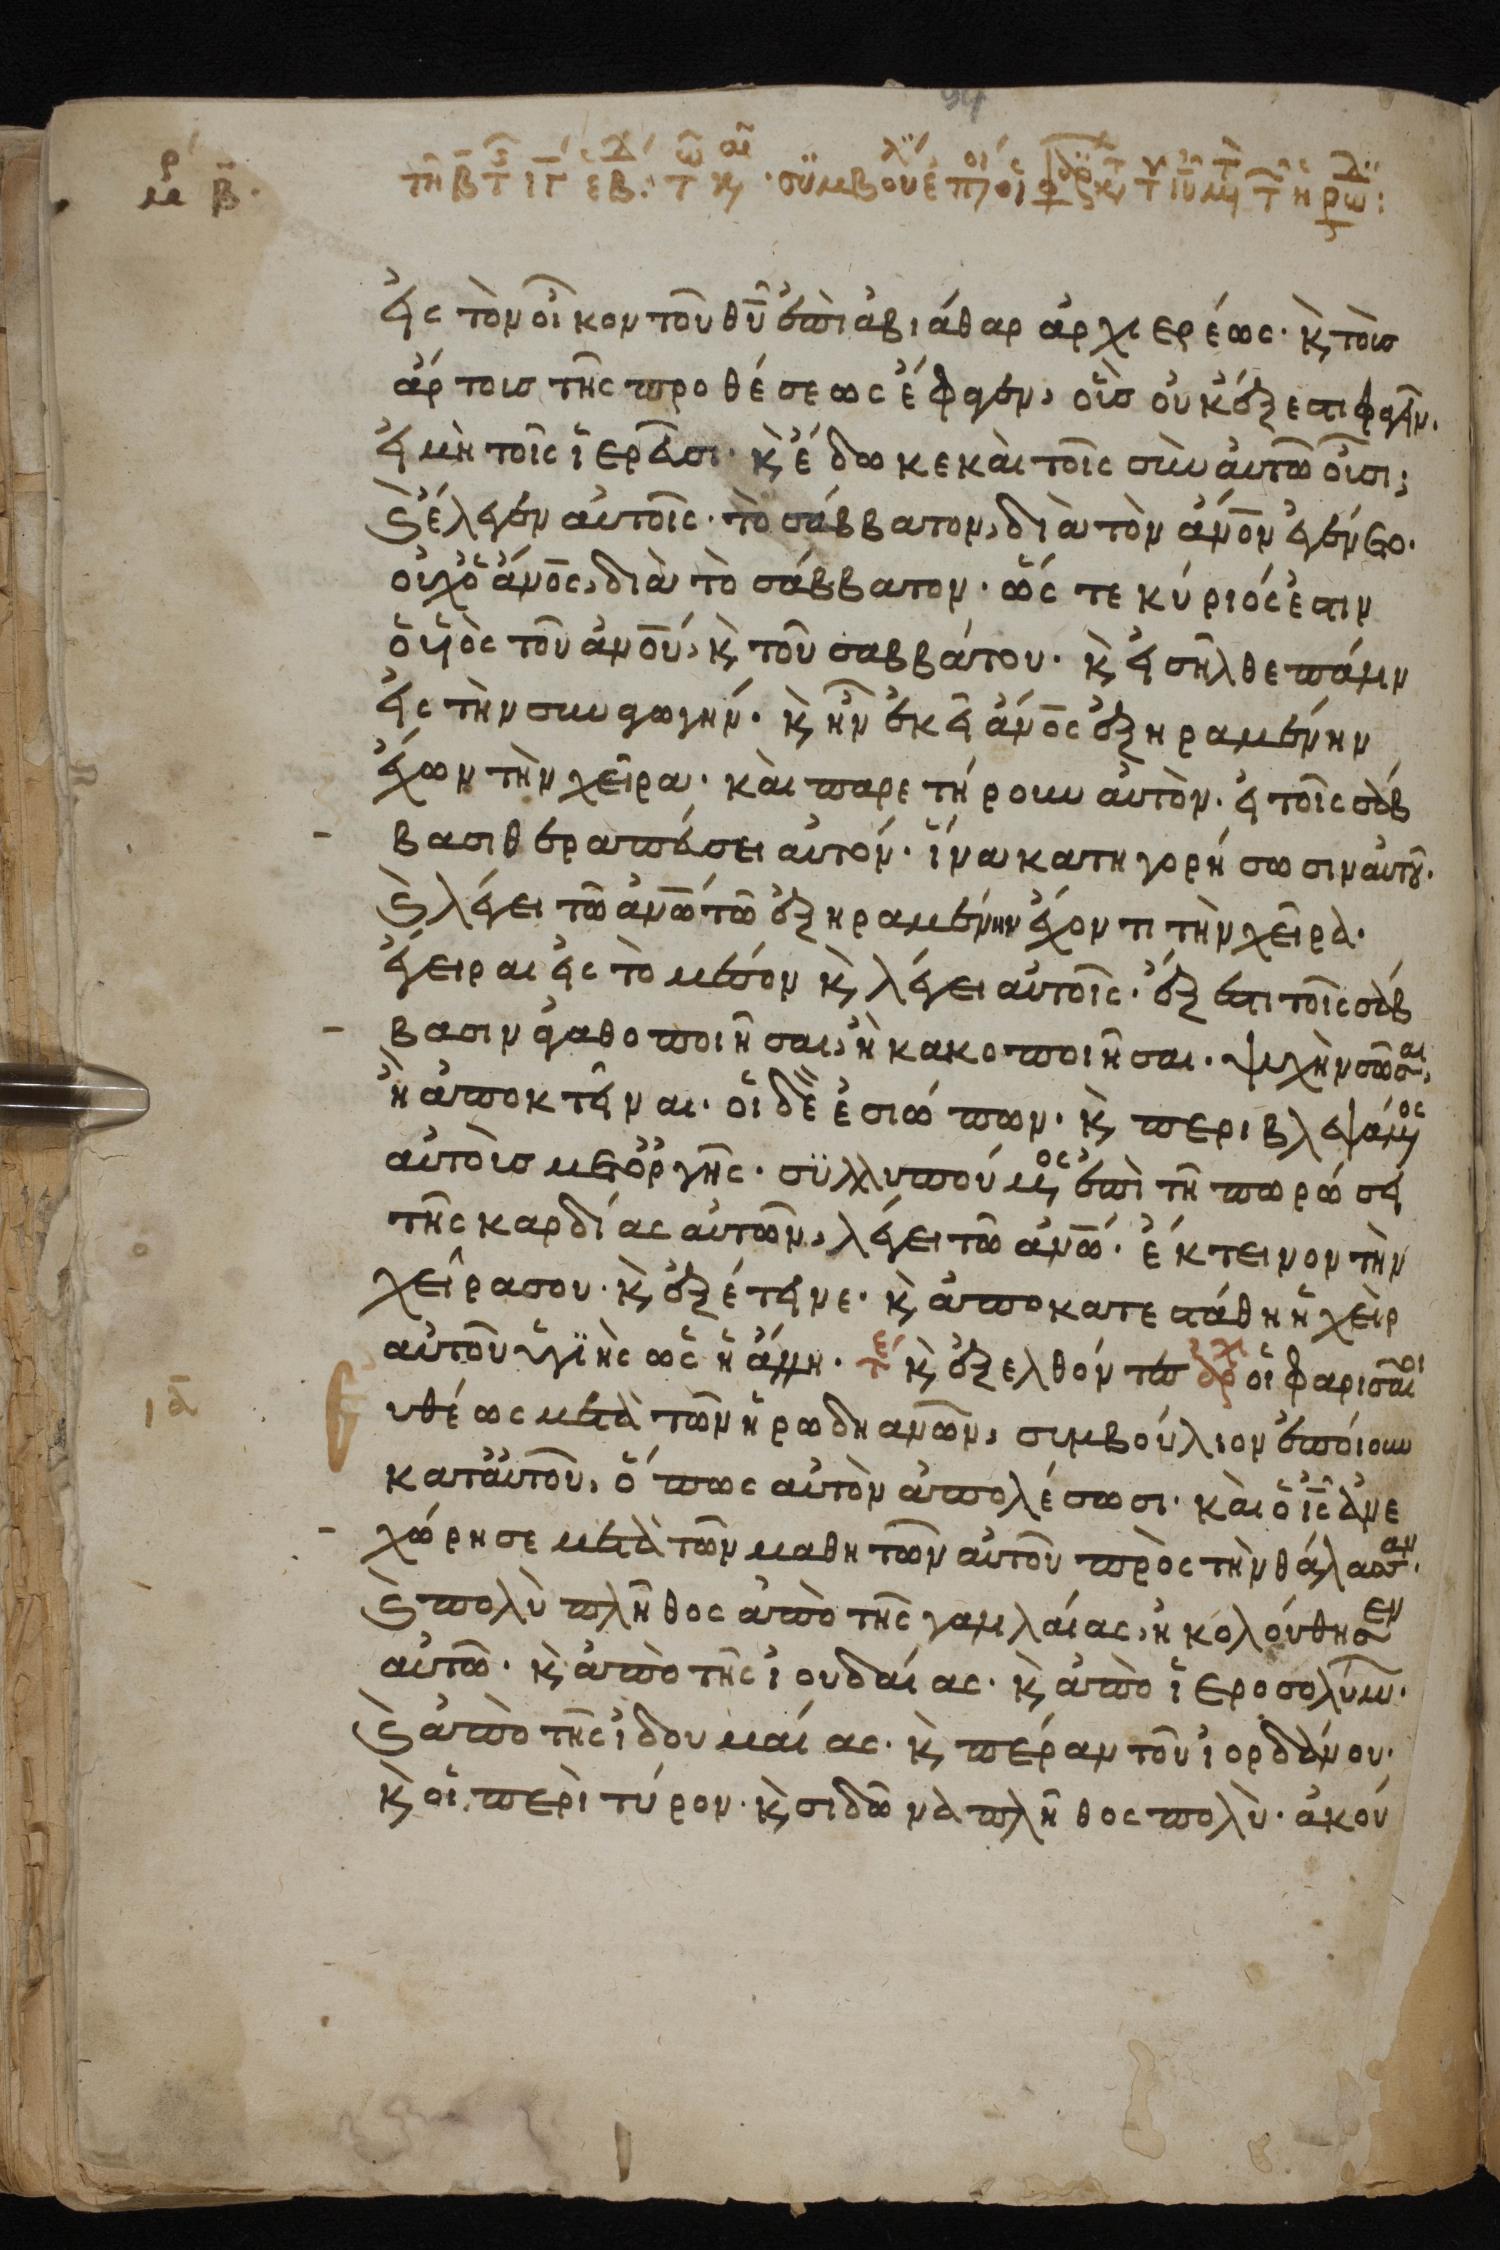 εἰς τὸν οἶκον τοῦ θῦ ἐπὶ ἀβιάθαρ ἀρχιερέως· κ̀ τοὺσ
ἄρτουσ τῆς προθέσεως ἔφαγεν, οὓσ οὐκ ἔξεστι φαγεῖν.
εἰ μὴ τοῖς ἱερεῦσι· κ̀ ἔδωκε καὶ τοῖς σὺν αὐτῶ οὖσι;
κ̀ ἔλεγεν αὐτοῖς· τὸ σάββατον, διὰ τὸν ἄνον ἐγένετο.
οὐχ ὁ ἄνος, διὰ τὸ σάββατον· ὥς τε κύριός ἐστιν
ὁ υἱὸς τοῦ ἀνου, κ̀ τοῦ σαββάτου. κ̀ εἰσῆλθε πάλιν
εἰς τὴν συναγωγήν· κ̀ ἦν ἐκεῖ ἄνος ἐξηραμένην
ἔχων τὴν χεῖρα· καὶ παρετήρουν αὐτὸν. εἰ τοῖς σάβ
βασι θεραπεύσει αὐτόν· ἵνα κατηγορήσωσιν αὐτοῦ.
κ̀ λέγει τῶ ἀνω τῶ ἐξηραμένην ἔχοντι τὴν χεῖρα.
ἔγειραι εἰς τὸ μέσον κ̀ λέγει αὐτοῖς· ἔξεστι τοῖς σάβ
βασιν ἀγαθοποιῆσαι, ἢ κακοποιῆσαι. ψυχὴν σῶσαι,
ἢ ἀποκτεῖναι. οἱ δὲ ἐσιώπων. κ̀ περιβλεψάμενος
αὐτοὺσ μετ ὀργῆς· συλλυπούμενος ἐπὶ τῆ πωρώσει
τῆς καρδίας αὐτῶν, λέγει τῶ ἀνω· ἔκτεινον τὴν
χεῖρα σου· κ̀ ἐξέτεινε· κ̀ ἀποκατεστάθη ἡ χεὶρ
αὐτοῦ ὑγϊὴς ὡς ἡ ἄλλη. τέ κ̀ ἐξελθόντες ἀρχ οἱ φαρισαῖοι
ευθέως μετὰ τῶν ἡρωδηανῶν, συμβούλιον ἐποίουν
κατ αὐτοῦ, ὅπως αὐτὸν ἀπολέσωσι· καὶ ὁ ἰς ἀνε
χώρησε μετὰ τῶν μαθητῶν αὐτοῦ πρὸς τὴν θάλασσαν.
κ̀ πολὺ πλῆθος ἀπὸ τῆς γαλιλαίας, ἠκολούθησεν
αὐτῶ· κ̀ ἀπὸ τῆς ἰουδαίας· κ̀ ἀπὸ ἱεροσολύμων.
κ̀ ἀπὸ τῆς ἰδουμαίας· κ̀ πέραν τοῦ ἰορδάνου.
κ̀ οἱ περὶ τύρον· κ̀ σιδῶνα πλῆθος πολὺ· ἀκού
ιδ